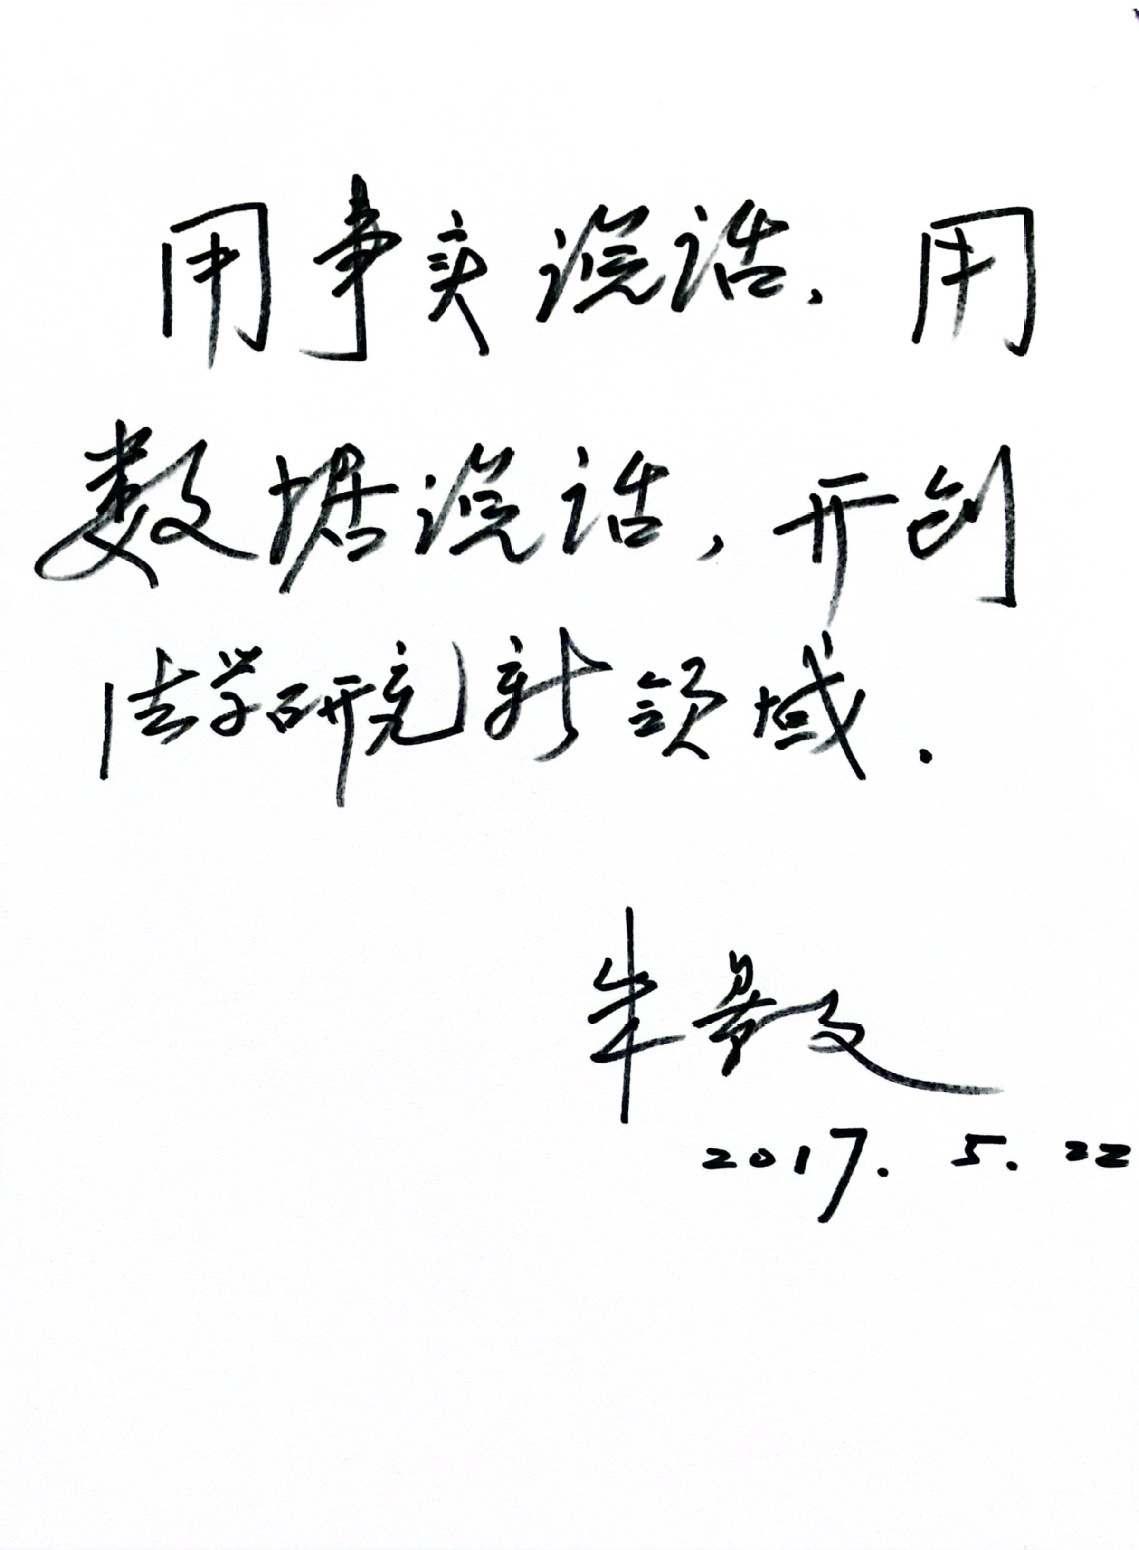 用事实说话、用
数据说话，开创
法学研究新领域.
朱景文
2017.5.22